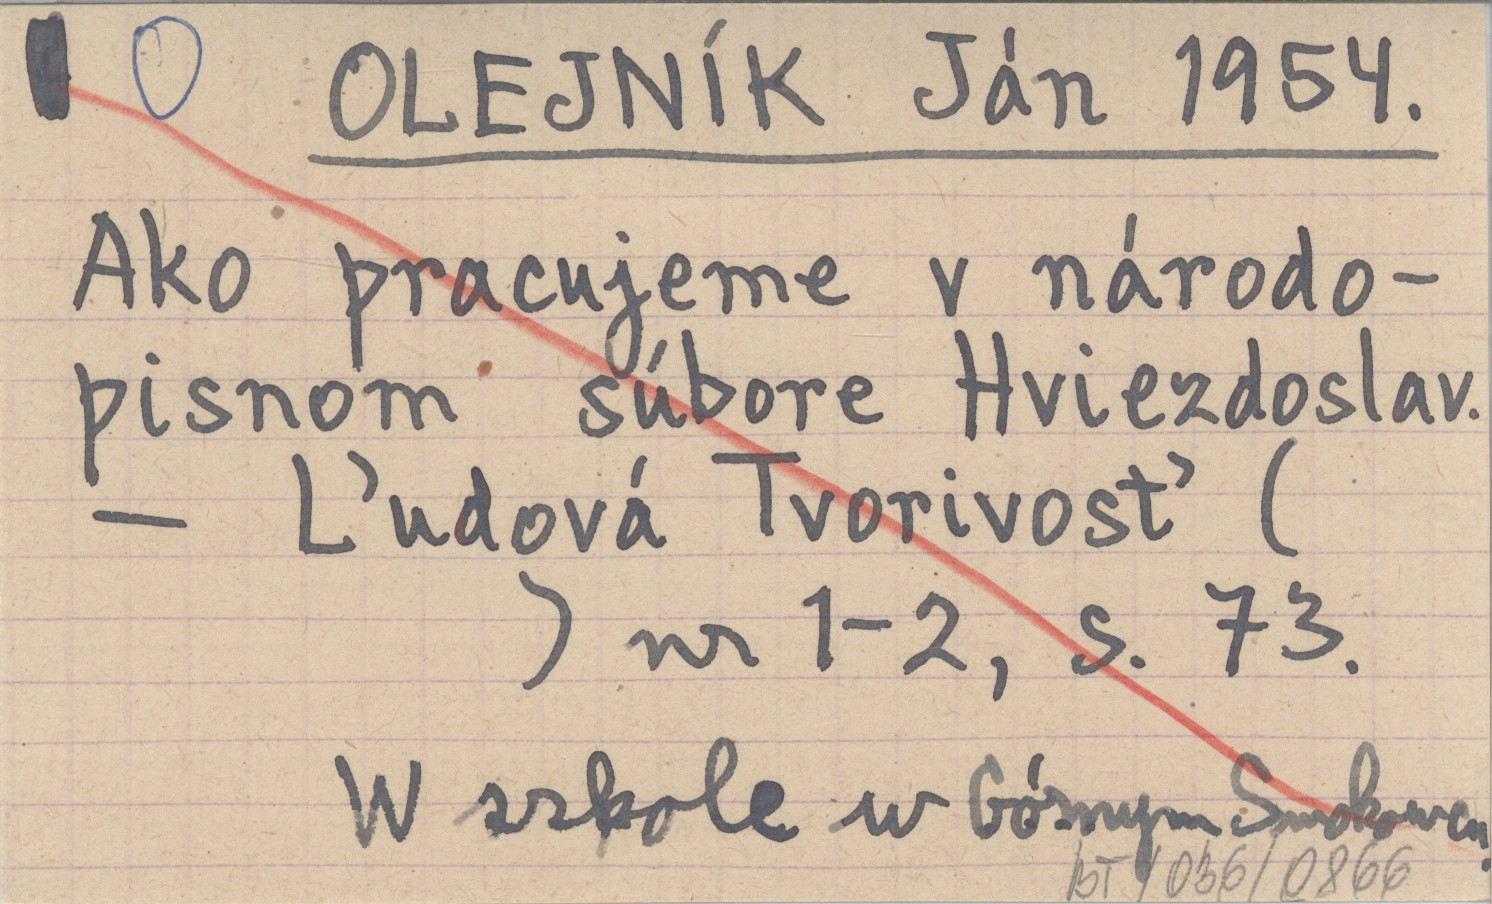 O OLEJNÍK Ján 1954.
Ako pracujeme v národo-
pisnom súbore Hviezdoslav.
— Ľudová Tvorivosť (
) nr 1-2, s. 73.
W szkole w Górnym Smokowcu.
BT/036/0866